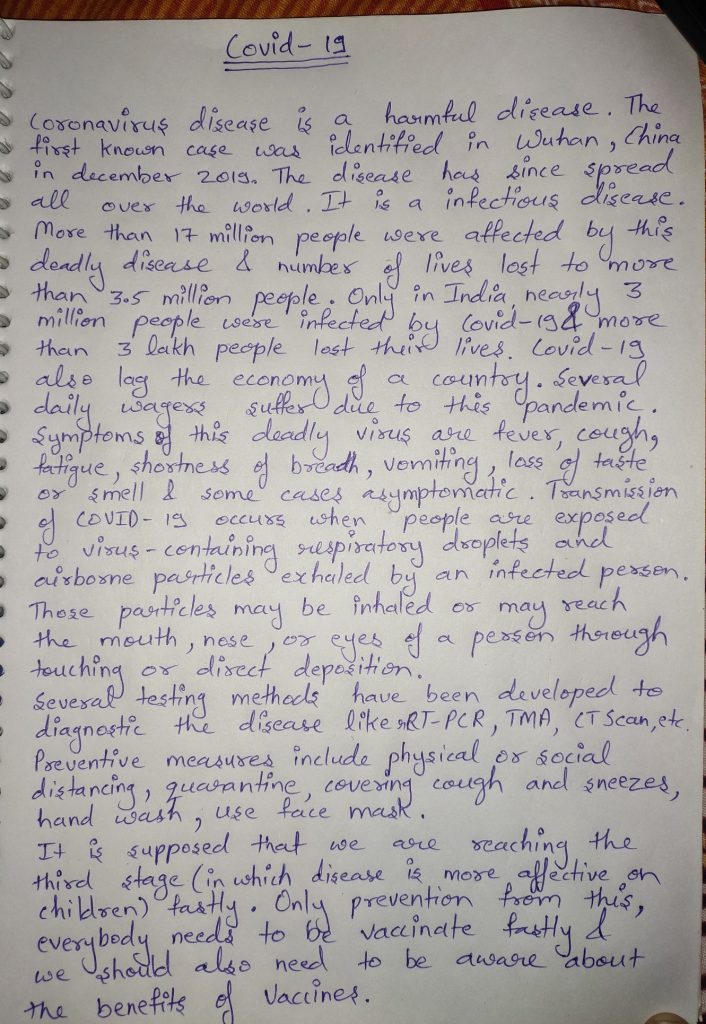 Covid-19
Coronavirus disease is a harmful disease. The
first known case was identified in Wuhan, China
in december 2019. The disease has since spread
all over the world. It is a infectious disease.
More than 17 million people were affected by this
deadly disease & number of lives lost to more
than 3.5 million people. Only in India, nearly 3
million people were infected by Covid-19 & more
than 3 lakh people lost their lives. Covid-19
also lag the economy of a country. Several
daily wagers suffer due to this pandemic.
Symptoms of this deadly virus are fever, cough,
fatigue, shortness of breath, vomiting, loss of taste
or smell & some cases asymptomatic. Transmission
of COVID-19 occurs when people are exposed
to virus-containing respiratory droplets and
airborne particles exhaled by an infected person.
Those particles may be inhaled or may reach
the mouth, nose, or eyes of a person through
touching or direct deposition.
Several testing methods have been developed to
diagnostic the disease like rRT-PCR, TMA, CT Scan, etc.
Preventive measures include physical or social
distancing, quarantine, covering cough and sneezes,
hand wash, use face mask.
It is supposed that we are reaching the
third stage (in which disease is more affective on
children) fastly. Only prevention from this,
everybody needs to be vaccinate fastly &
we should also need to be aware about
the benefits of Vaccines.